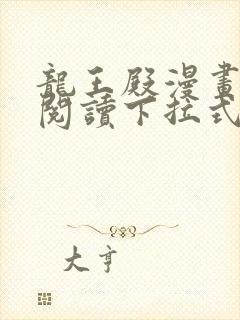 龍王殿漫畫
閱讀下拉式
大亨